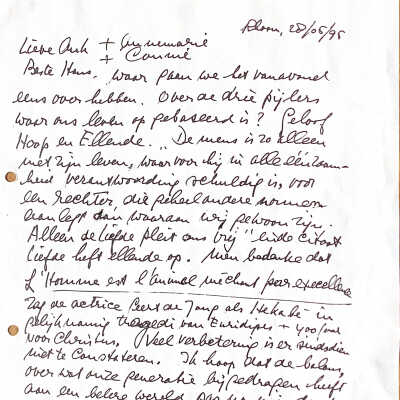 28/05/95
Lieve + Annemarie
+ Connie
Beste Hans, waar gaan we het vanavond
eens over hebben. Over de drie pijlers
waar ons leven op gebaseerd is? Geloof
Hoop en Ellende. "De mens is zo alleen
met zijn leven, waarvoor hij in alle eenzaam-
heid verantwoording schuldig is, voor
een Rechter, die geheel andere normen
aanlegt dan waaraan wij gewoon zijn.
Alleen de liefde pleit ons vrij" einde citaat
liefde heft ellende op. Men bedenke dat
L'Homme est l'animal méchant par excellence
Zag de actrice de Jong als Hekabe in
gelijknamig tragedi van Euridipes + 400 jaar
voor Christus. Veel verbetering is er sindsdien
niet te Constateren. Ik hoop dat de balans,
over wat onze generatie bijgedragen heeft
aan een betere wereld